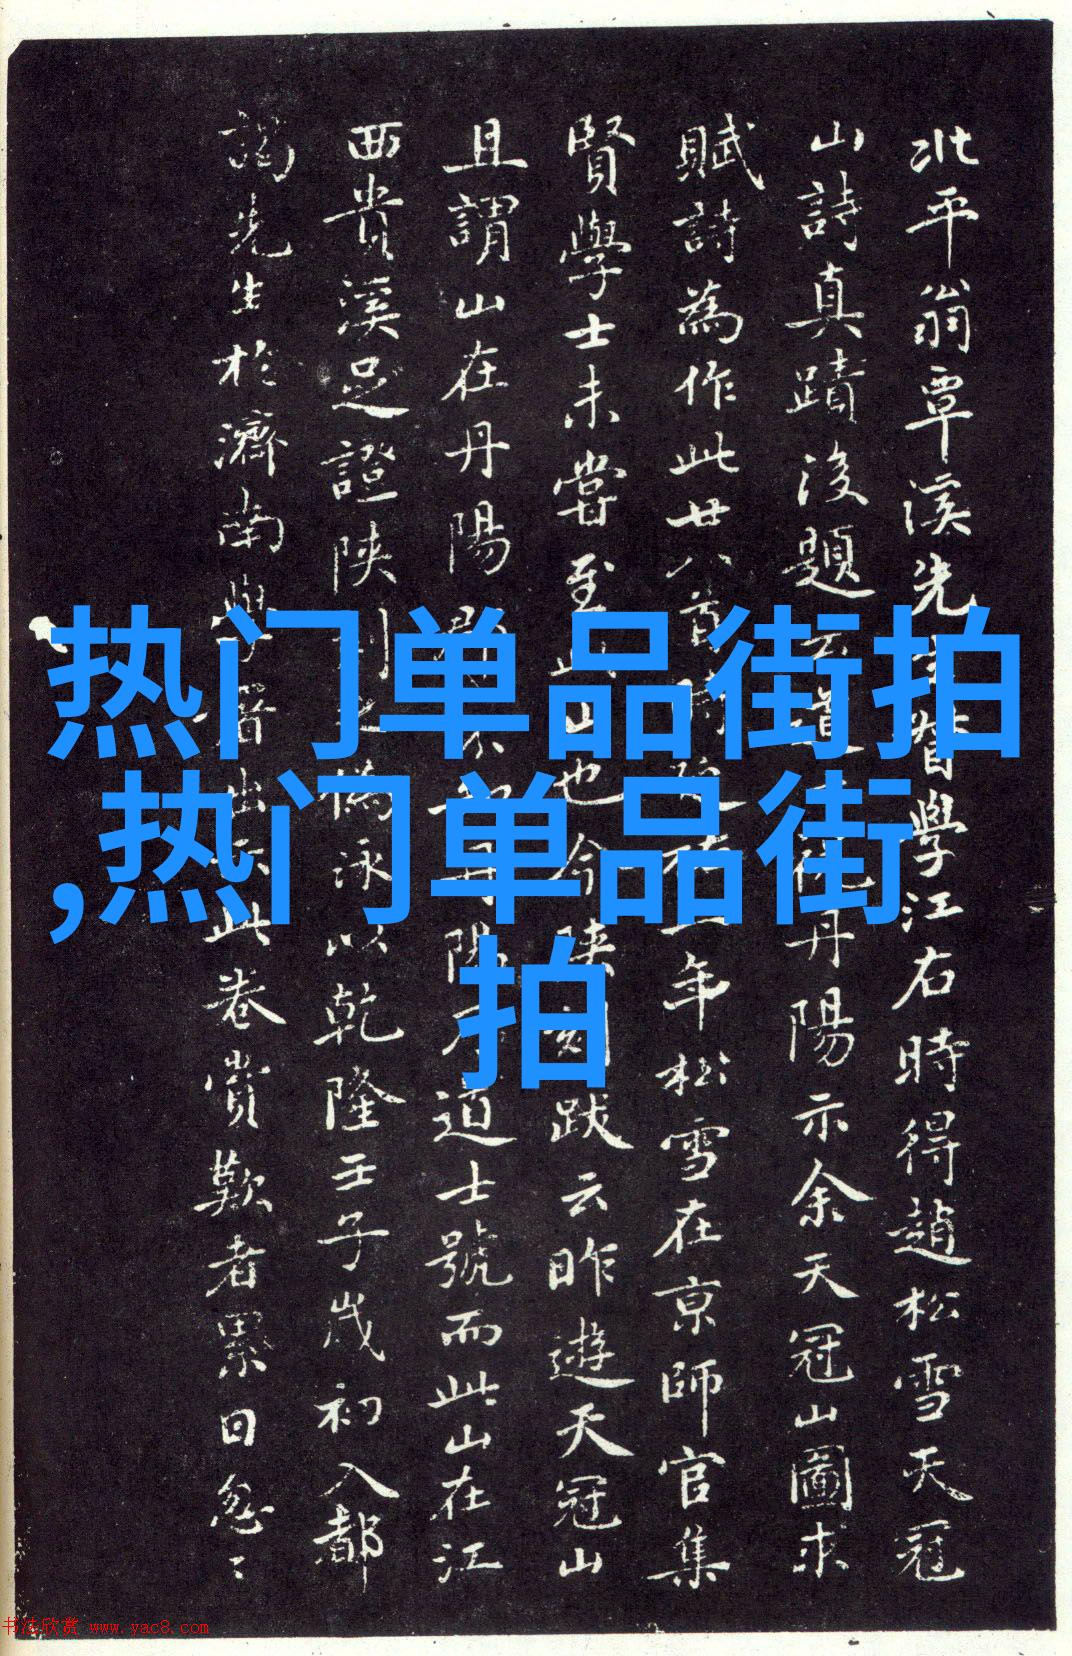 北平翁覃溪先督學江右時得趙松雪天冠
山詩真蹟後題道丹陽示余天冠山圖求
賦詩為作此廿八首年松雪在京師官集
賢學士未嘗至此山也今陝刻跋云昨遊天冠山
且謂山在丹陽道士號而此山在江
西貴溪足證陝刻之偽泳以乾隆壬子歲初入都
謁先生於濟南學署出此卷賞歎者累日忽〻
热门单品街拍
,热门单品街
拍
书法欣赏 www.yac8.com